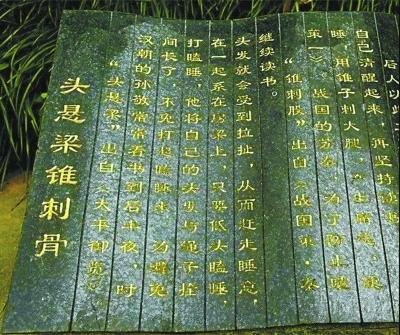 头悬梁锥刺骨
“头悬梁”出自《太平御览》
汉朝的孙敬常常看书到后半夜，时
间长了，不免打起瞌睡来。为避免
打瞌睡，他将自己的头发与绳子拴
在一起系在房梁上，只要低头瞌睡，
头发就会受到拉扯，从而赶走睡意，
继续读书。
“锥刺股”出自《战国策·秦
策一》，战国的苏秦，为了防止瞌
睡，用锥子刺大腿，产生痛感，使
自己清醒起来，再坚持读书
后人以此